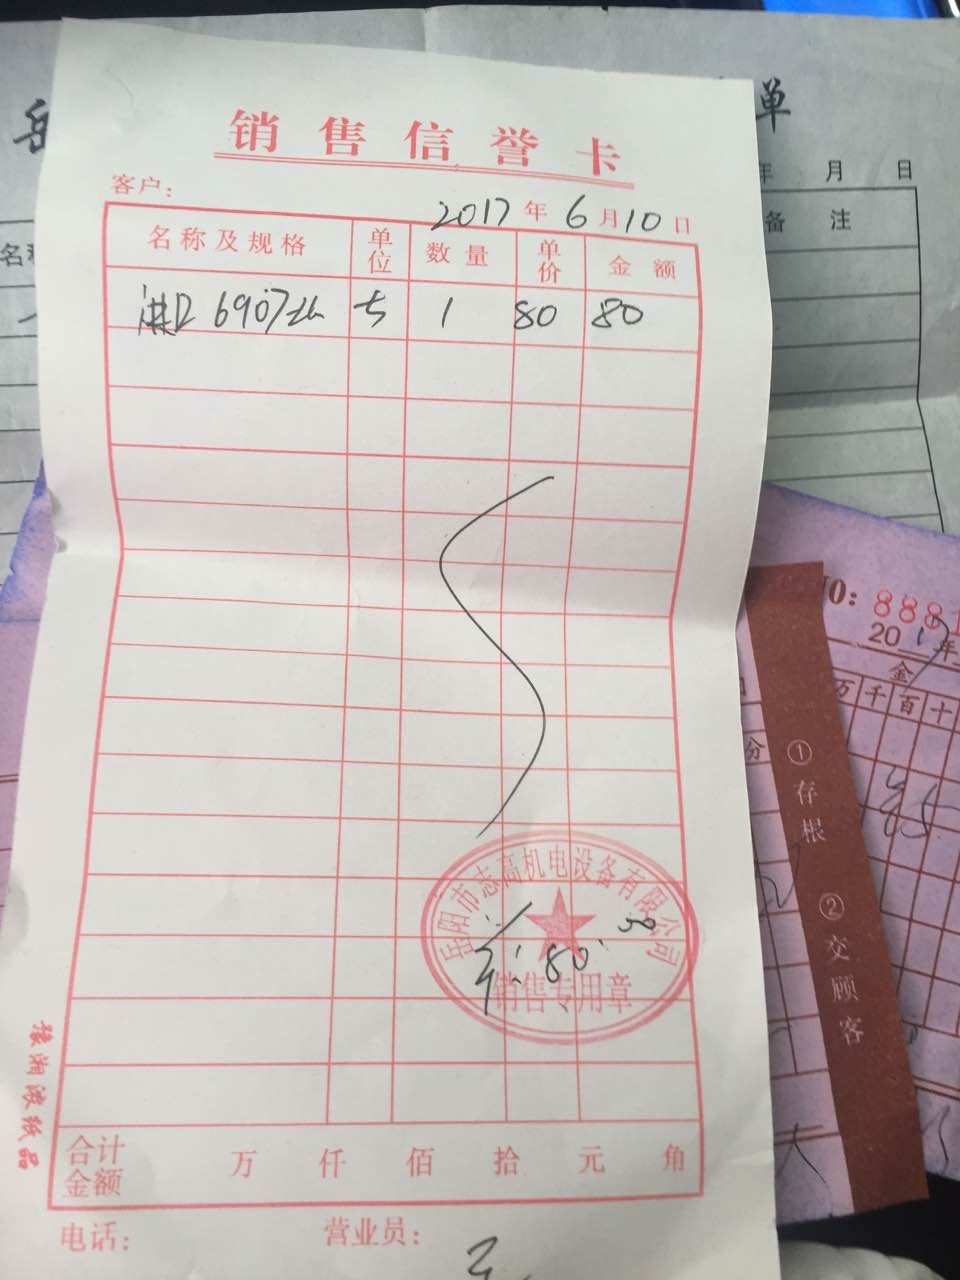 销售信誉卡
客户:
2017年6月10日
名称及规格 单位 数量 单价 金额
6907 1 80 80
岳阳市志高机电设备有限公司
80
销售专用章
合计金额 万 仟 佰 拾 元 角
电话: 营业员:
豫湘滚纸品
岳 单
年 月 日
名称 备注
NO: 8881
2017年
金
万 千 百 十
分
85
①存根 ②交顾客